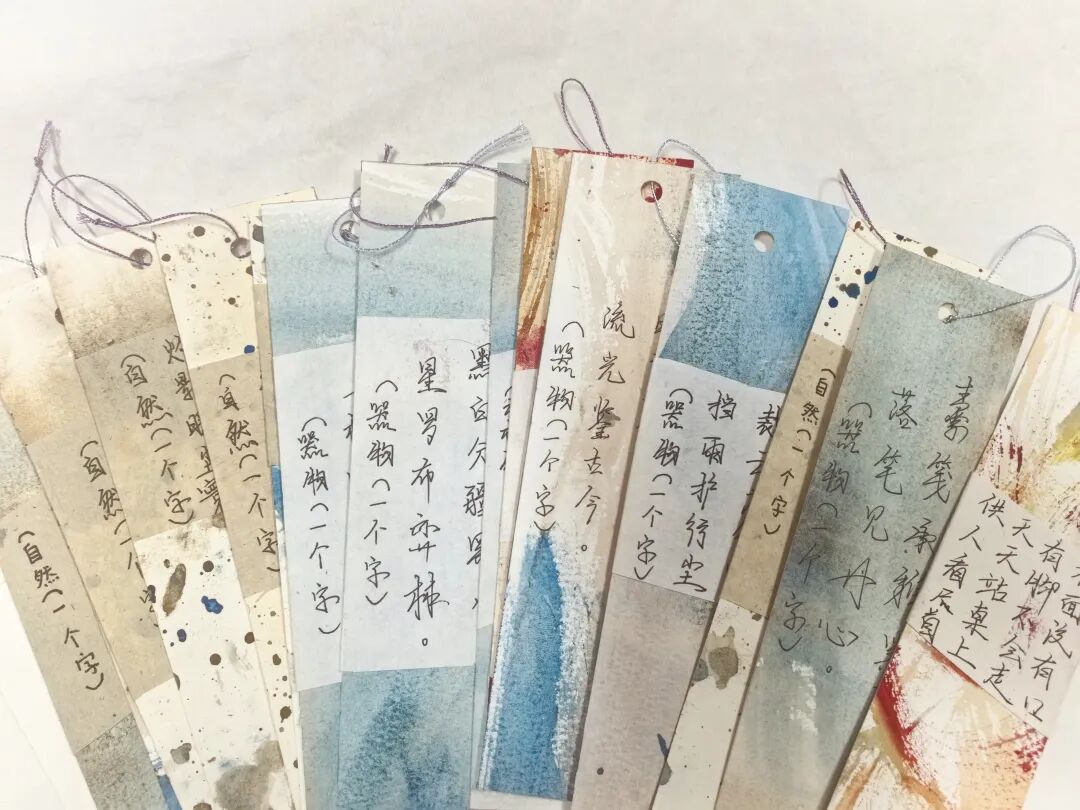 （自然（一个字）
（自然（一个
（自然（一个字）
（自然（一个字）
（器物（一个字）
黑白分疆界，
星罗布弈林。
（器物（一个字）
流光鉴古今。
（器物（一个字）
裁
挡雨护行尘
（器物（一个字）
（自然（一个字）
素笺承彩
落笔见丹心。
（器物（一个字）
面没有口
有脚不会走
天天站桌上
供人看